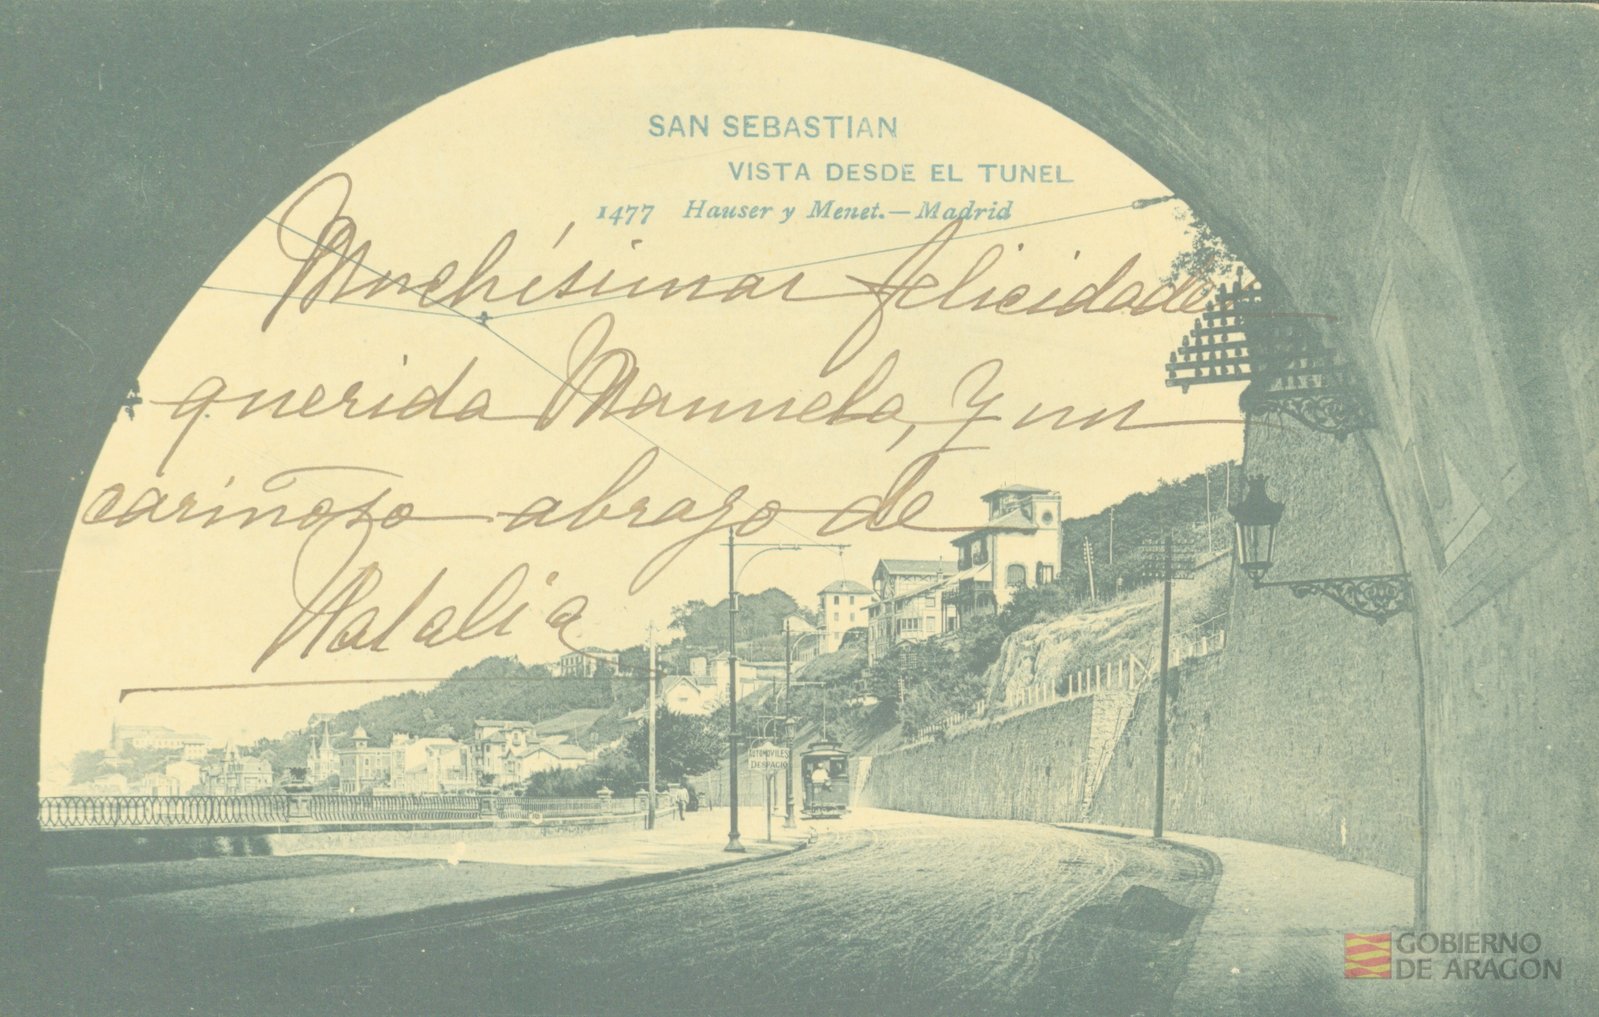 SAN SEBASTIAN
VISTA DESDE EL TUNEL
1477 Hauser y Menet.—Madrid
Muchísimas felicidades
querida Manuela, y un
cariñoso abrazo de
Natalia
AUTOMOVILES
DESPACIO
GOBIERNO
DE ARAGON